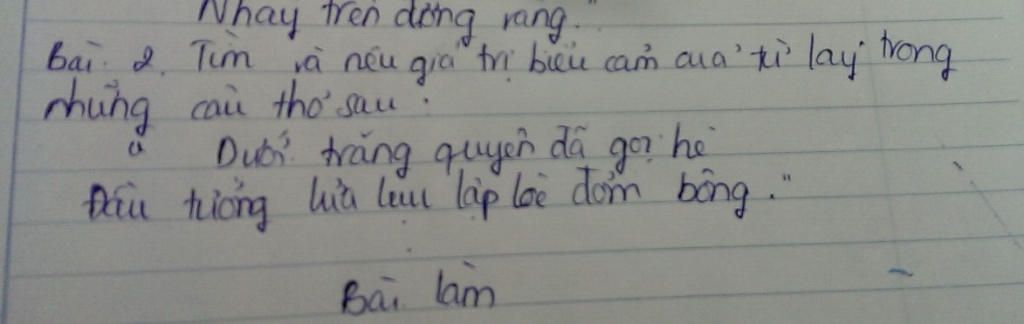 Nhảy trên đồng vàng."
Bài 2. Tìm và nêu giá trị biểu cảm của từ láy trong
những câu thơ sau:
" Dưới trăng quyên đã gọi hè
Đầu tường lửa lựu lập loè đơm bông."
Bài làm